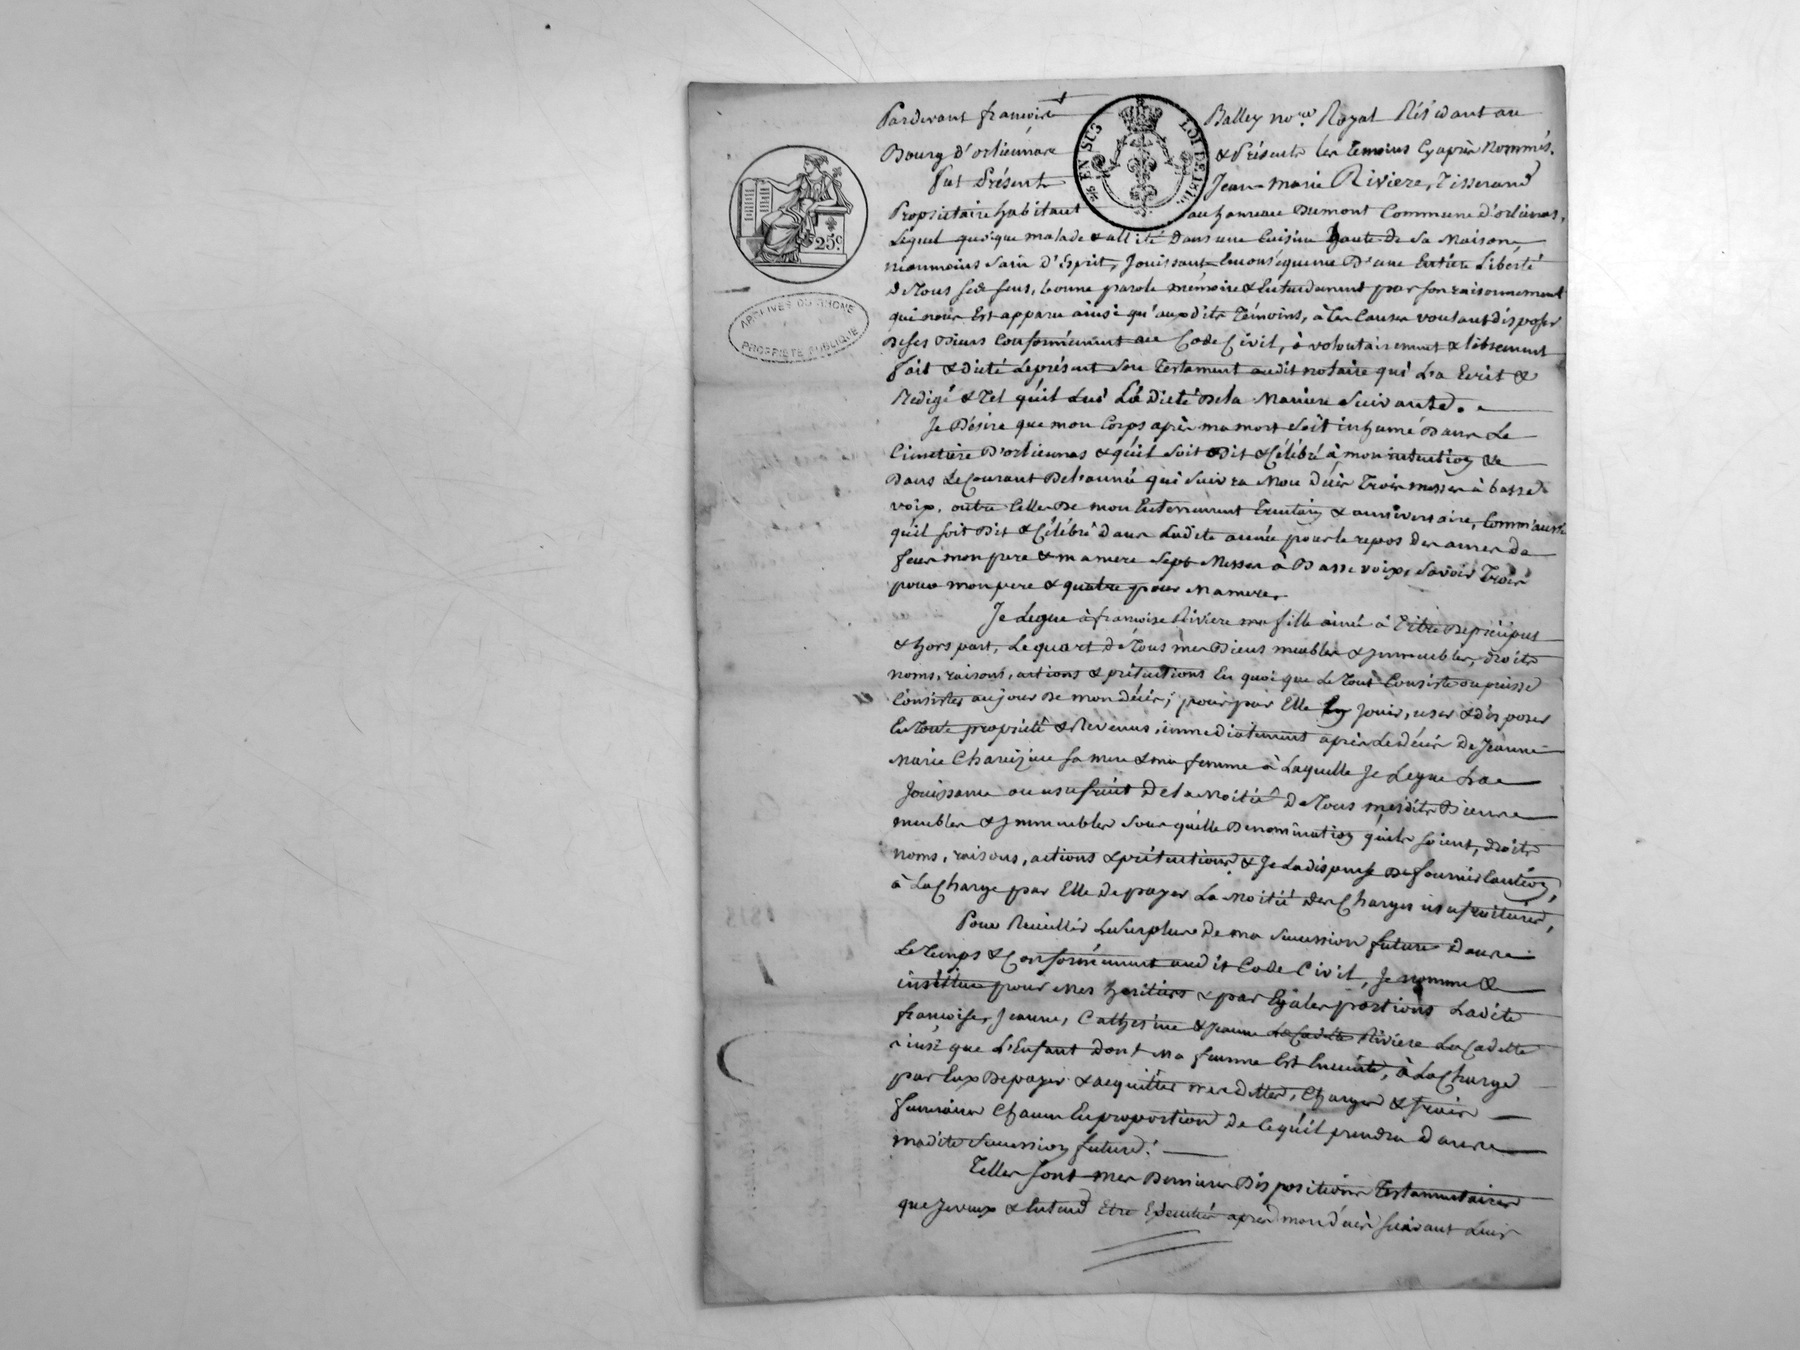 Pardevant françois Balley no.re Royal Résidant au
Bourg d'orliénas & Présents les Temoins Cyaprès Nommés.
fut Présent Jean-marie Riviere, Tisserand
Propriétaire habitant au hameau Dumont Commune d'orliénas,
Lequel quoique malade & allité Dans une Cuisine haute de Sa Maison,
néanmoins Sain D'Esprit, Jouissant Enconséquence D'une Entière Liberté
de Tous Ses Sens, bonne parole mémoire & Entendement par Son raisonnement
qui nous Est apparu ainsi qu'auxdits Témoins, à Ces Causes voulant disposer
De ses Biens Conformément au Code Civil, à volontairement & librement
fait & dicté Le présent Son Testament audit notaire qui L'a Ecrit &
Redigé & Tel qu'il Lui Là dicté De la Manière Suivante.
Je Désire que mon Corps après ma mort Soit inhumé Dans Le
Cimetière D'orliénas & qu'il Soit Dit & Célébré à mon intention &
Dans Le Courant De l'année qui Suivra Mon décès Trois messes à basse
voix, outre Celles De mon Enterrement Trentain & anniversaire, Comm'aussi
qu'il Soit Dit & Célébré Dans Ladite année pour le repos des ames de
feus mon pere & ma mere Sept Messes à Basse voix, Savoir Trois
pour mon pere & quatre pour Ma mere.
Je Legue à françoise Riviere ma fille ainée à Titre De préciput
& hors part, Le quart de Tous mes Biens meubles & immeubles, droits
noms, raisons, actions & prétentions En quoi que Le Tout Consiste ou puisse
Consister au jour De mon décès; pour par Elle En Jouir, user & disposer
En Toute propriété & Revenus, immédiatement après Le décès de Jeanne
Marie Sa mere & ma femme à Laquelle Je Legue La
Jouissance ou usufruit de la Moitié de Tous mesdits Biens
meubles & immeubles Sous qu'elle Denomination qu'ils Soient, droits
noms, raisons, actions & prétentions, & Je La dispense De fournir Caution,
à La Charge par Elle de payer La Moitié des Charges usufruitieres,
Pour Recueillir Le Surplus de ma Succession future dans
Le Temps & Conformément audit Code Civil, Je nomme &
institue pour Mes heritiers & par Egales portions Ladite
françoise, Jeanne, Catherine & Jeanne La Cadette Riviere La Cadette
ainsi que L'Enfant Dont Ma femme Est Enceinte, à La Charge
par Eux De payer & acquitter mes dettes, Charges & frais
funéraires Chacun En proportion de Ce qu'il prendra dans
madite Succession future.
Telles Sont mes Dernieres Dispositions Testamentaires
que Je veux & Entend Etre Exécutées après mon décès Suivant Leur
25c.
EN SUS
LOI DE 181
ARCHIVES DU RHONE
PROPRIÉTÉ PUBLIQUE